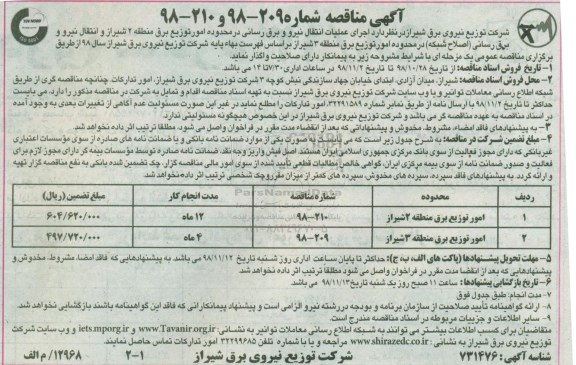 آگهی مناقصه شماره ۲۰۹-۹۸ و ۲۱۰-۹۸
شرکت توزیع نیروی برق شیراز در نظر دارد اجرای عملیات انتقال نیرو و برق رسانی در محدوده امور توزیع برق منطقه ۲ شیراز و انتقال نیرو و
برق رسانی (اصلاح شبکه) در محدوده امور توزیع برق منطقه ۳ شیراز بر اساس فهرست بهاء پایه شرکت توزیع نیروی برق شیراز سال ۹۸ از طریق
برگزاری مناقصه عمومی یک مرحله ای با شرایط مشروحه زیر به پیمانکار دارای صلاحیت واگذار نماید.
۱- تاریخ فروش اسناد مناقصه: از تاریخ ۹۸/۱۰/۲۸ تا تاریخ ۹۸/۱۱/۲ در ساعات اداری ۷/۳۰ تا ۱۳ می باشد.
۲- محل فروش اسناد مناقصه: شیراز، میدان آزادی، ابتدای خیابان جهاد سازندگی نبش کوچه ۳ شرکت توزیع نیروی برق شیراز، امور تدارکات. چنانچه مناقصه گری از طریق
شبکه اطلاع رسانی معاملات توانیر و یا وب سایت شرکت توزیع نیروی برق شیراز نسبت به تهیه اسناد مناقصه اقدام و تمایل به شرکت در مناقصه مذکور را دارد، می بایست
حداکثر تا تاریخ ۹۸/۱۱/۲ با ارسال نامه از طریق نمابر شماره ۳۲۲۹۱۵۸۹، امور تدارکات را مطلع نماید در غیر این صورت مسئولیت عدم آگاهی از تغییرات بعدی به وجود آمده
در اسناد مناقصه به عهده مناقصه گر می باشد و شرکت توزیع نیروی برق شیراز در این خصوص هیچگونه مسئولیتی ندارد.
۳- به پیشنهادهای فاقد امضاء، مشروط، مخدوش و پیشنهاداتی که بعد از انقضاء مدت مقرر در فراخوان واصل می شود، مطلقا ترتیب اثر داده نخواهد شد.
۴- مبلغ تضمین شرکت در مناقصه: به شرح جدول زیر است که می بایست به صورت یکی از موارد ضمانت نامه بانکی و یا ضمانت نامه های صادره از سوی مؤسسات اعتباری
غیربانکی که دارای مجوز فعالیت از سوی بانک مرکزی جمهوری اسلامی ایران هستند، اصل فیش واریز وجه نقد، ضمانت نامه صادره توسط مؤسسات بیمه گر دارای مجوز لازم برای
فعالیت و صدور ضمانت نامه از سوی بیمه مرکزی ایران، گواهی خالص مطالبات قطعی تأیید شده از سوی امور مالی مناقصه گزار، چک تضمین شده بانکی به نفع مناقصه گزار تهیه
و ارائه گردد. به پیشنهادهای فاقد سپرده، سپرده های مخدوش، سپرده های کمتر از میزان مقرر و چک شخصی ترتیب اثر داده نخواهد شد.
ردیف محدوده شماره مناقصه مدت انجام کار مبلغ تضمین (ریال)
۱ امور توزیع برق منطقه ۲ شیراز ۲۱۰-۹۸ ۱۲ ماه ۶۰۴/۶۲۰/۰۰۰
۲ امور توزیع برق منطقه ۳ شیراز ۲۰۹-۹۸ ۴ ماه ۴۹۷/۷۲۰/۰۰۰
۵- مهلت تحویل پیشنهادها (پاکت های الف، ب، ج): حداکثر تا پایان ساعت اداری روز شنبه تاریخ ۹۸/۱۱/۱۲ می باشد به پیشنهادهایی که فاقد امضاء، مشروط، مخدوش و
پیشنهادهایی که بعد از انقضاء مدت مقرر در فراخوان واصل می شود مطلقا ترتیب اثر داده نخواهد شد.
۶- تاریخ بازگشایی پیشنهادها: ساعت ۱۱ صبح روز یک شنبه تاریخ ۹۸/۱۱/۱۳ می باشد.
۷- مدت انجام: طبق جدول فوق
۸- ارائه گواهینامه تأیید صلاحیت از سازمان برنامه و بودجه در رشته نیرو الزامی است و پیشنهاد پیمانکارانی که فاقد این گواهینامه باشند بازگشایی نخواهد شد.
۹- سایر اطلاعات و جزییات مربوطه در اسناد مناقصه مندرج است.
متقاضیان برای کسب اطلاعات بیشتر می توانند به شبکه اطلاع رسانی معاملات توانیر به نشانی: www.Tavanir.org.ir و iets.mporg.ir و وب سایت شرکت
توزیع برق شیراز به نشانی: www.shirazedc.co.ir مراجعه و یا با شماره تلفن ۳۲۲۹۹۶۸۵ امور تدارکات تماس حاصل نمایند.
شناسه آگهی: ۷۳۱۴۷۶ شرکت توزیع نیروی برق شیراز ۲-۱ ۱۲۹۶۸/م الف